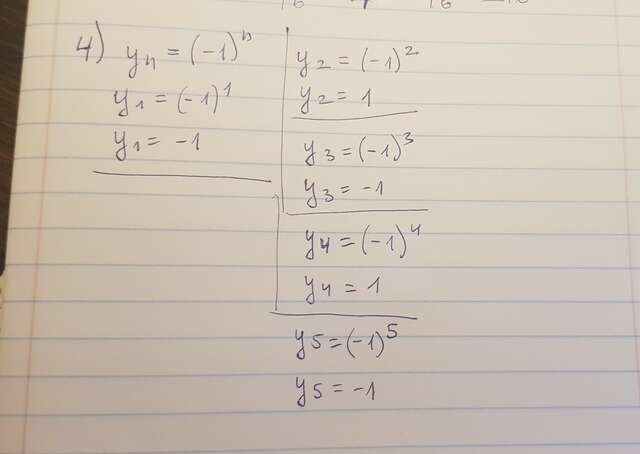 4) yn = (-1)^n
y1 = (-1)^1
y1 = -1
y2 = (-1)^2
y2 = 1
y3 = (-1)^3
y3 = -1
y4 = (-1)^4
y4 = 1
y5 = (-1)^5
y5 = -1